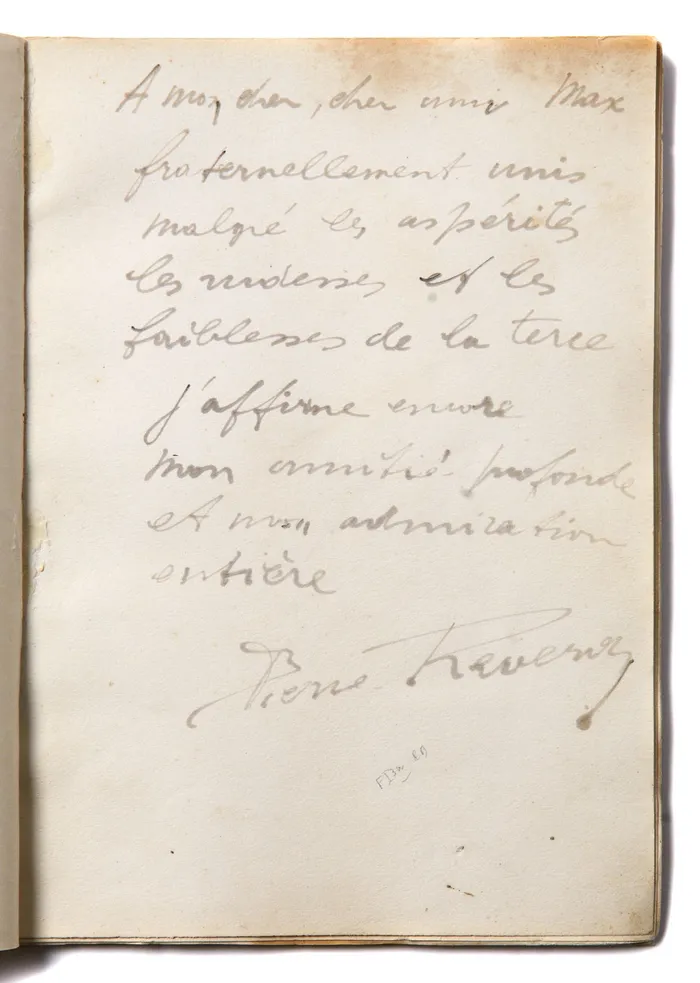 A mon cher, cher ami Max
fraternellement unis
malgré les aspérités
les rudesses et les
faiblesses de la terre
j'affirme encore
mon amitié profonde
et mon admiration
entière
Pierre Reverdy